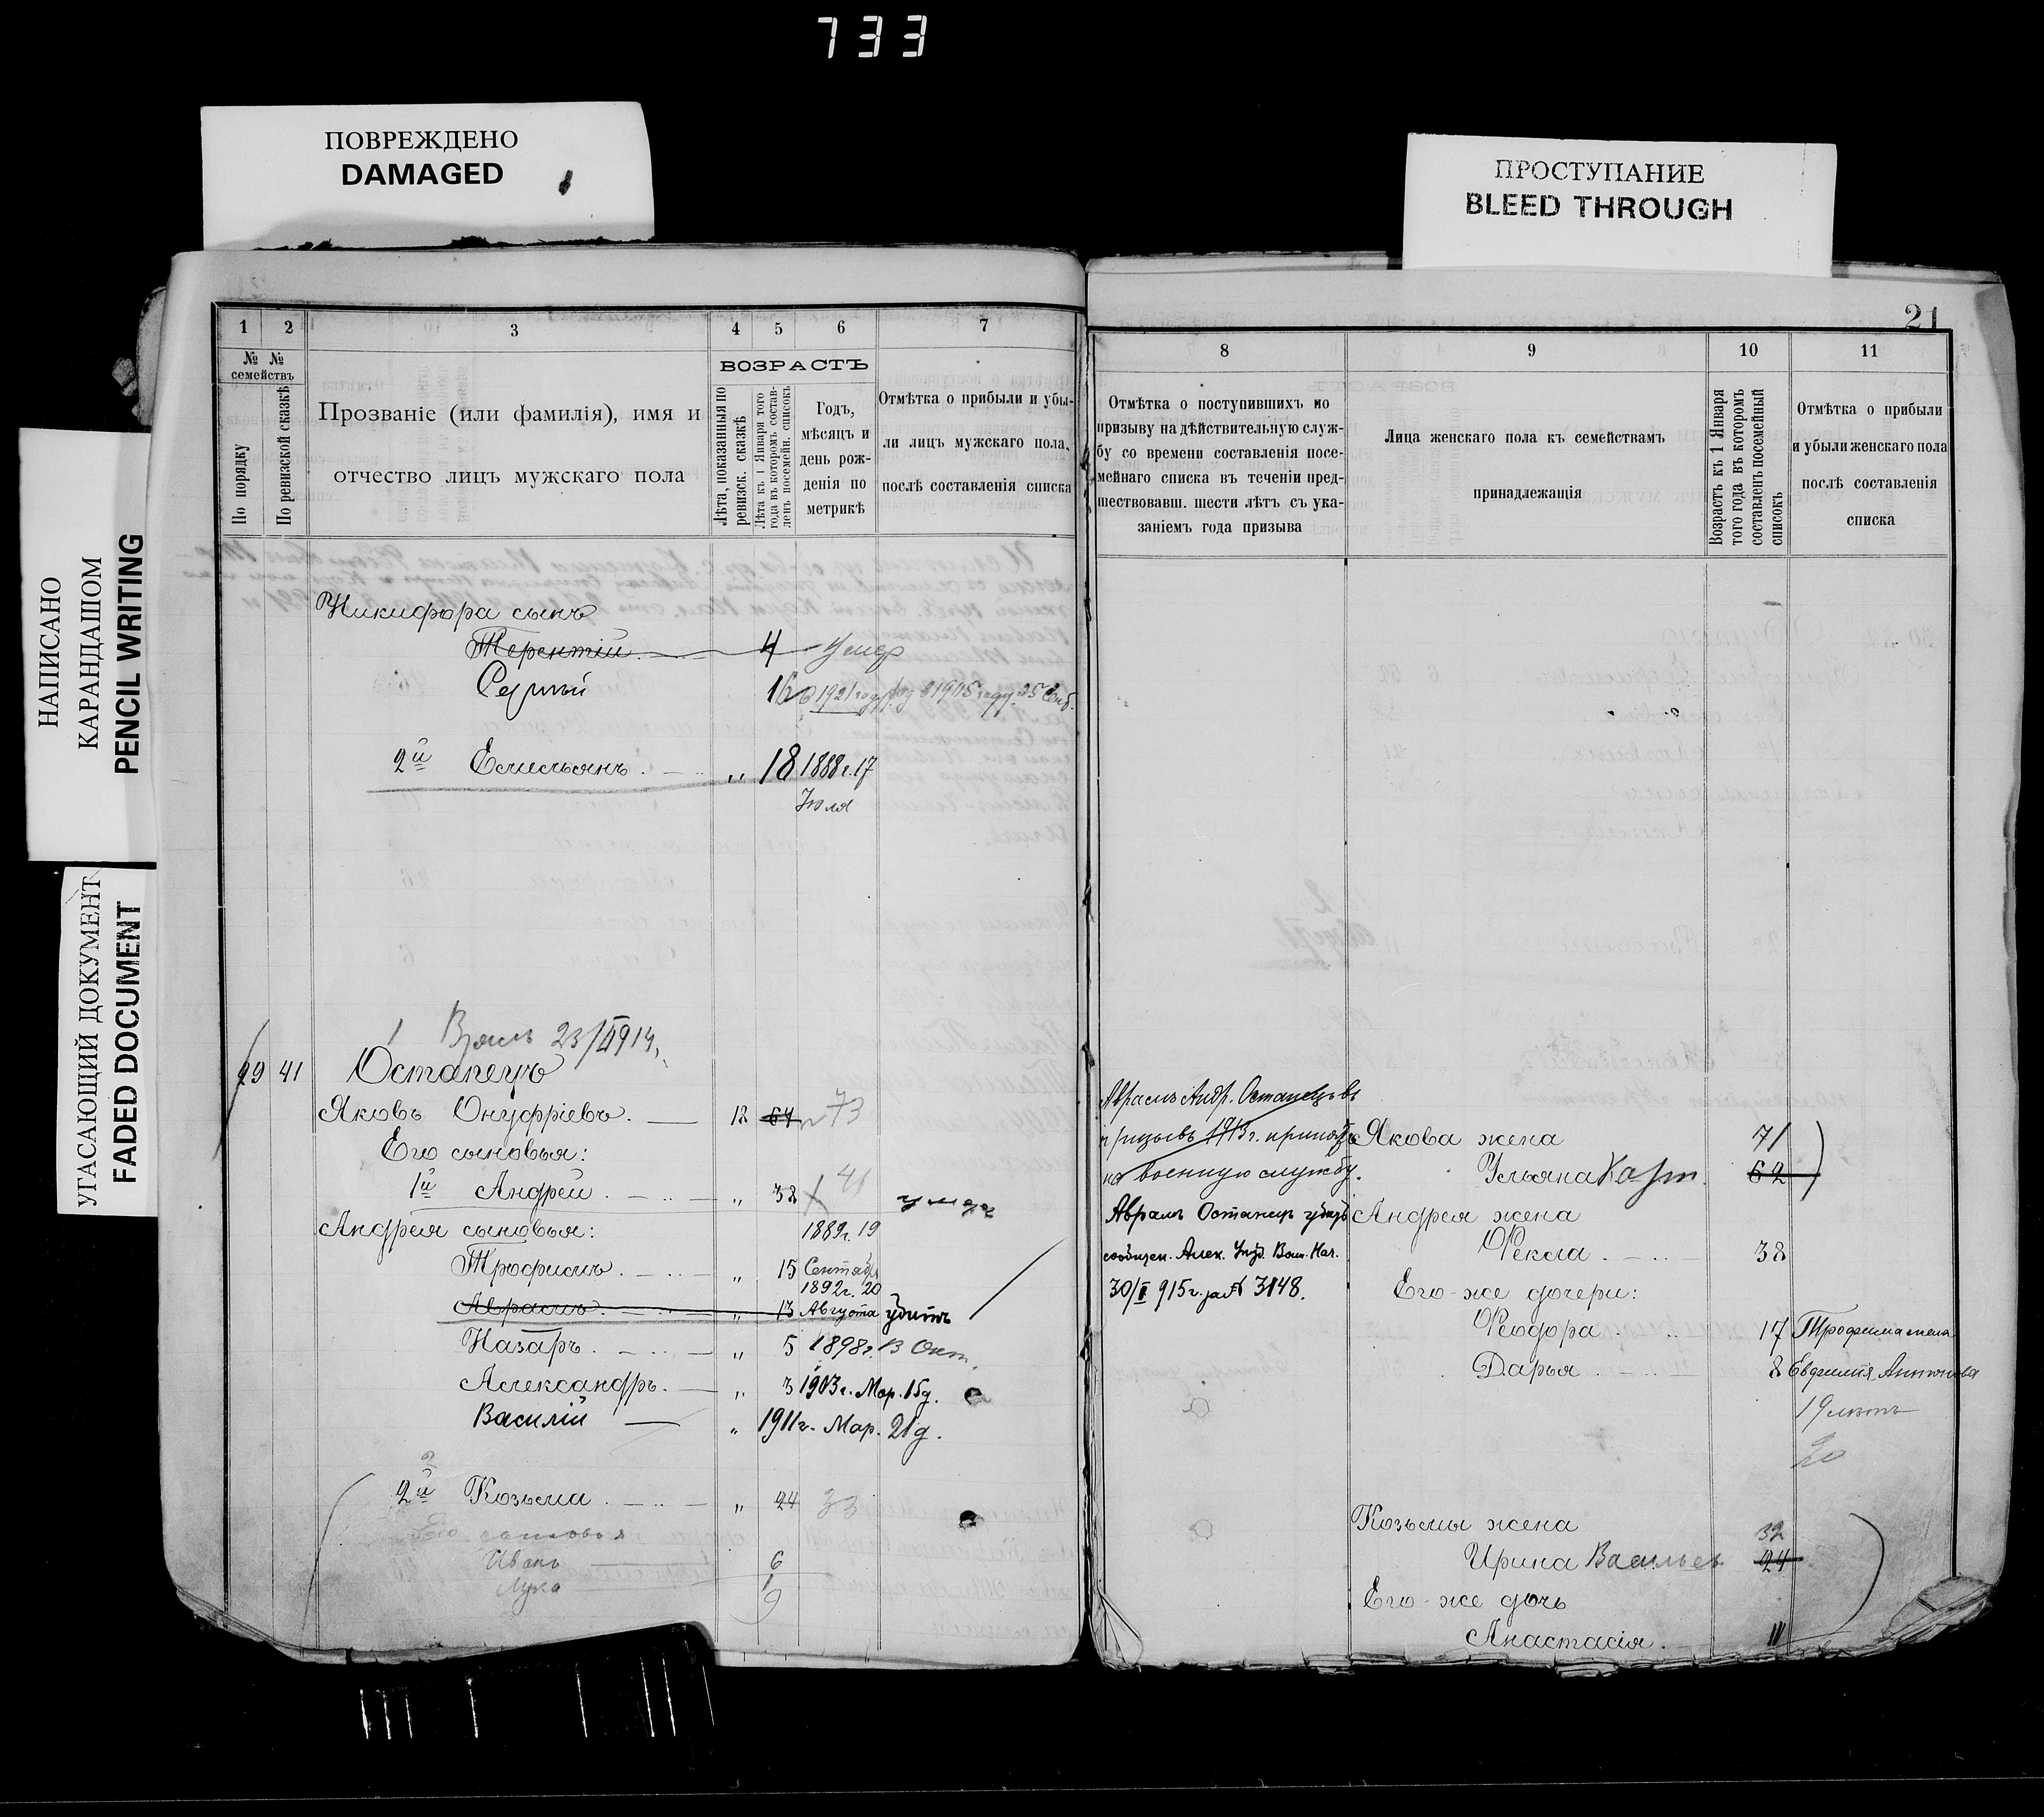 733
ПОВРЕЖДЕНО
DAMAGED
ПРОСТУПАНИЕ
BLEED THROUGH
НАПИСАНО
КАРАНДАШОМ
PENCIL WRITING
УГАСАЮЩИЙ ДОКУМЕНТ
FADED DOCUMENT
21
1 2 3 4 5 6 7
№ №
семействъ
По порядку
По ревизской сказкѣ
Прозваніе (или фамилія), имя и
отчество лицъ мужскаго пола
ВОЗРАСТЪ
Лѣта, показанныя по
ревизск. сказкѣ
Лѣта къ 1 Января того
года въ которомъ состав-
ленъ посемейн. списокъ
Годъ,
мѣсяцъ и
день рож-
денія по
метрикѣ
Отмѣтка о прибыли и убы-
ли лицъ мужскаго пола,
послѣ составленія списка
Никифора сынъ
Терентій 4 Умер
Сергѣй 16 в 1921 году род в 1905 году 25 Сент.
2й Емельянъ „ 18 1888 г. 17
Іюля
1 23/II 914
29 41 Останецъ
Яковъ Онуфріевъ 12 64 73
Его сыновья:
1й Андрей „ 38 41 умер
Андрея сыновья: 1889 г. 19
Трофимъ „ 15 Сентября
1892 г. 20
Аврамъ „ 13 Августа убитъ
Назаръ „ 5 1898 г. 13 Окт.
Александръ „ 3 1903 г. Мар. 15 д.
Василій „ 1911 г. Мар. 21 д.
2й Козьма „ 24 33
Его сыновья
Иванъ 6
Лука 1
9
8 9 10 11
Отмѣтка о поступившихъ по
призыву на дѣйствительную служ-
бу со времени составленія посе-
мейнаго списка въ теченіи пред-
шествовавш. шести лѣтъ съ ука-
заніемъ года призыва
Лица женскаго пола къ семействамъ
принадлежащія
Возрастъ къ 1 Января
того года въ которомъ
составленъ посемейный
списокъ
Отмѣтка о прибыли
и убыли женскаго пола
послѣ составленія
списка
Аврамъ Андр. Останецъ въ
призывъ 1913 г. принятъ
на военную службу.
Аврамъ Останец убитъ
сообщен. Алек. Уѣз. Воин. Нач.
30/I 915 г. за № 3148.
Якова жена 71
Ульяна 62
Андрея жена
Фекла 38
Его-же дочери:
Феодора 17 Трофима жена
Дарья 8 Евдокія Антонова
19 лѣтъ
20
Козьмы жена 32
Ирина Васильев 24
Его-же дочь
Анастасія